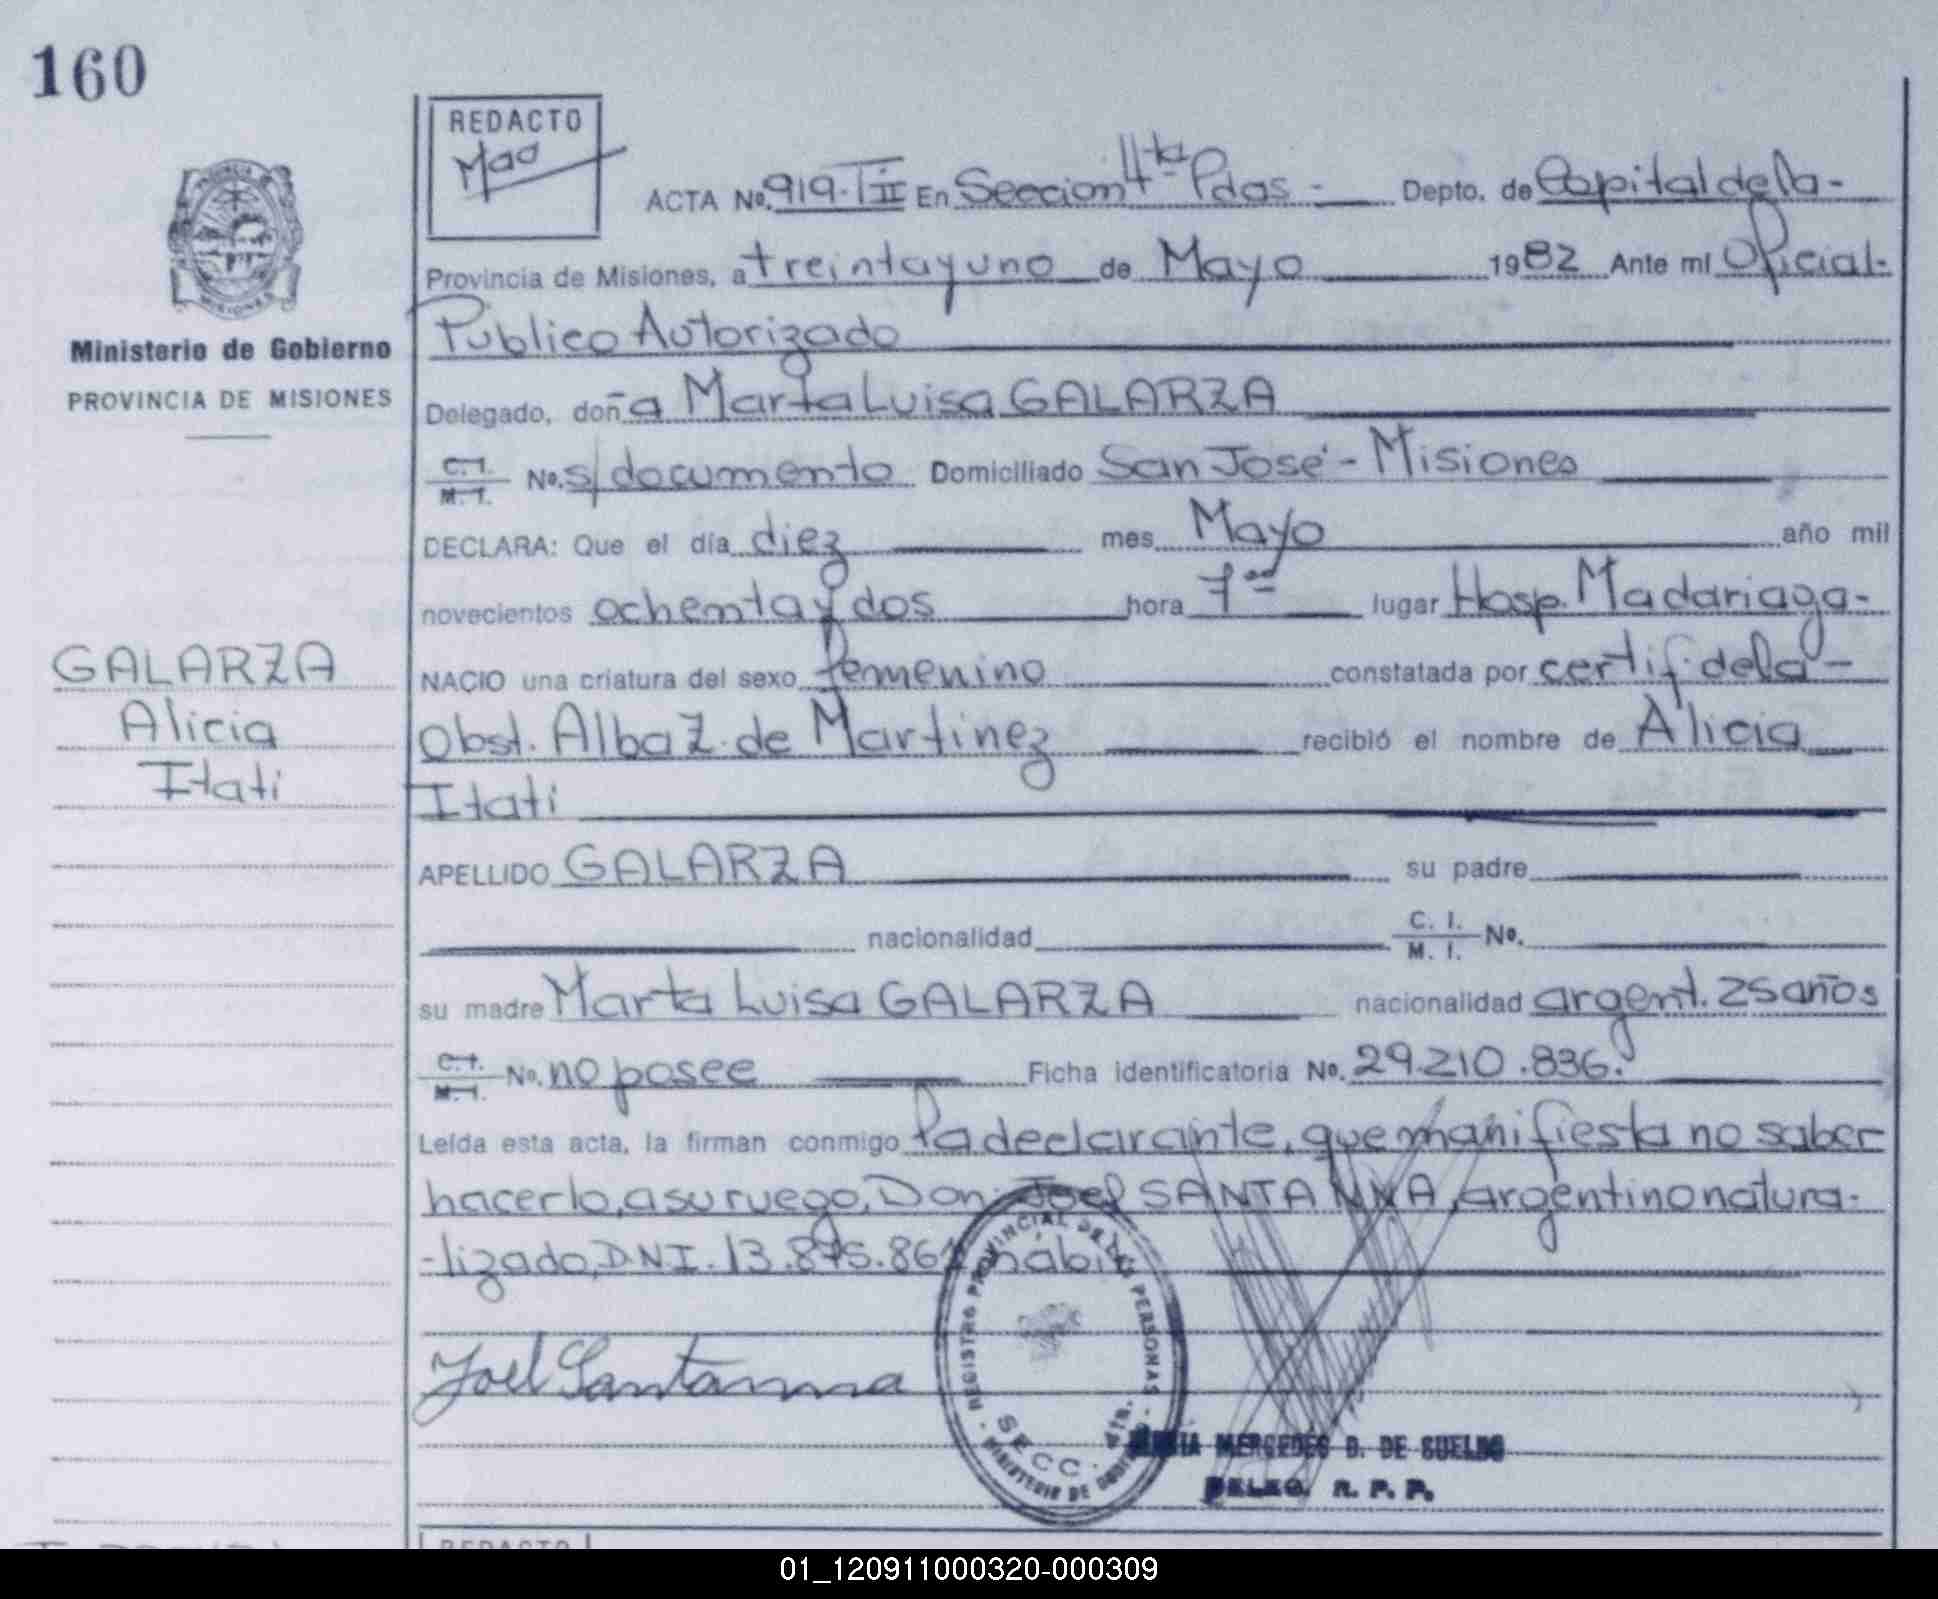 160
REDACTO
Mao
ACTA Nº. 919-TII En Seccion 4ta Pdas - Depto. de Capital de la -
Provincia de Misiones, a treinta y uno de Mayo 1982 Ante mí Oficial-
Publico Autorizado
Ministerio de Gobierno
PROVINCIA DE MISIONES
Delegado, doña Marta Luisa GALARZA
C.I. M.I. Nº. s/documento Domiciliado San José - Misiones
DECLARA: Que el día diez mes Mayo año mil
novecientos ochenta y dos hora 7 lugar Hosp. Madariaga-
NACIO una criatura del sexo femenino constatada por certif. de la -
Obst. Alba Z. de Martinez recibió el nombre de Alicia
Itati
GALARZA
Alicia
Itati
APELLIDO GALARZA su padre
nacionalidad C. I. M. I. Nº.
su madre Marta Luisa GALARZA nacionalidad argent. 25 años
C.I. M.I. Nº. no posee Ficha identificatoria Nº. 29.210.836.
Leída esta acta, la firman conmigo la declarante, que manifiesta no saber
hacerlo, a su ruego, Don: Joel SANTA NNA, argentino natura-
-lizado, D.N.I. 13.875.861 hábil
Joel Santanna
REGISTRO PROVINCIAL DE LAS PERSONAS
SECC. 4ta.
MINISTERIO DE GOBIERNO
MARIA MERCEDES B. DE SUELDO
DELEG. R. P. P.
REDACTO
01_120911000320-000309